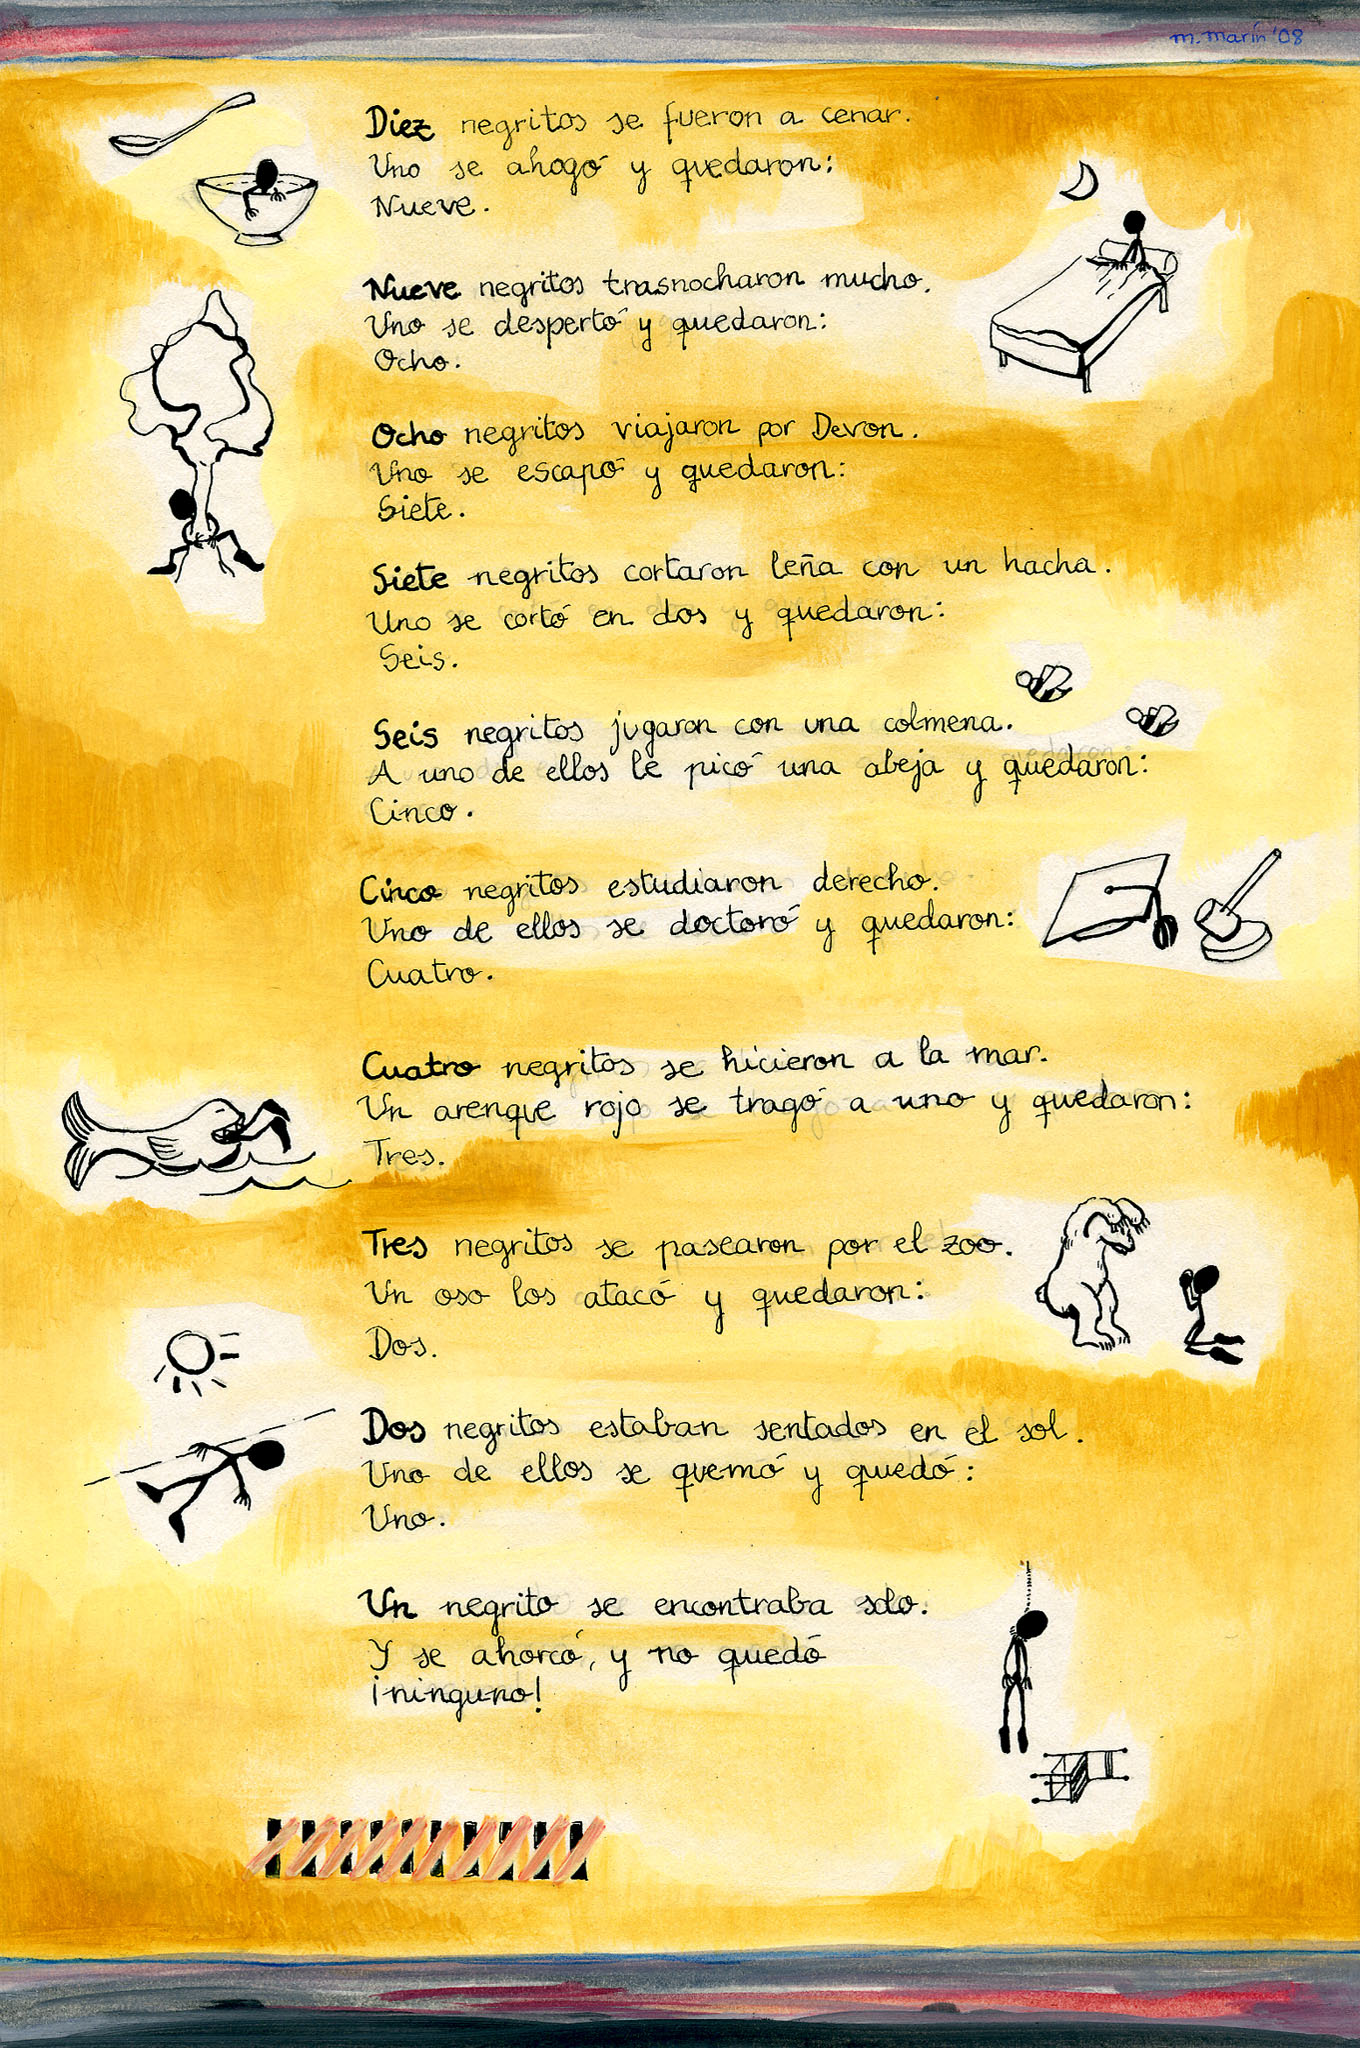 m. marín '08
Diez negritos se fueron a cenar.
Uno se ahogó y quedaron:
Nueve.
Nueve negritos trasnocharon mucho.
Uno se despertó y quedaron:
Ocho.
Ocho negritos viajaron por Devon.
Uno se escapó y quedaron:
Siete.
Siete negritos cortaron leña con un hacha.
Uno se cortó en dos y quedaron:
Seis.
Seis negritos jugaron con una colmena.
A uno de ellos le picó una abeja y quedaron:
Cinco.
Cinco negritos estudiaron derecho.
Uno de ellos se doctoró y quedaron:
Cuatro.
Cuatro negritos se hicieron a la mar.
Un arenque rojo se tragó a uno y quedaron:
Tres.
Tres negritos se pasearon por el zoo.
Un oso los atacó y quedaron:
Dos.
Dos negritos estaban sentados en el sol.
Uno de ellos se quemó y quedó:
Uno.
Un negrito se encontraba solo.
Y se ahorcó, y no quedó
¡ninguno!